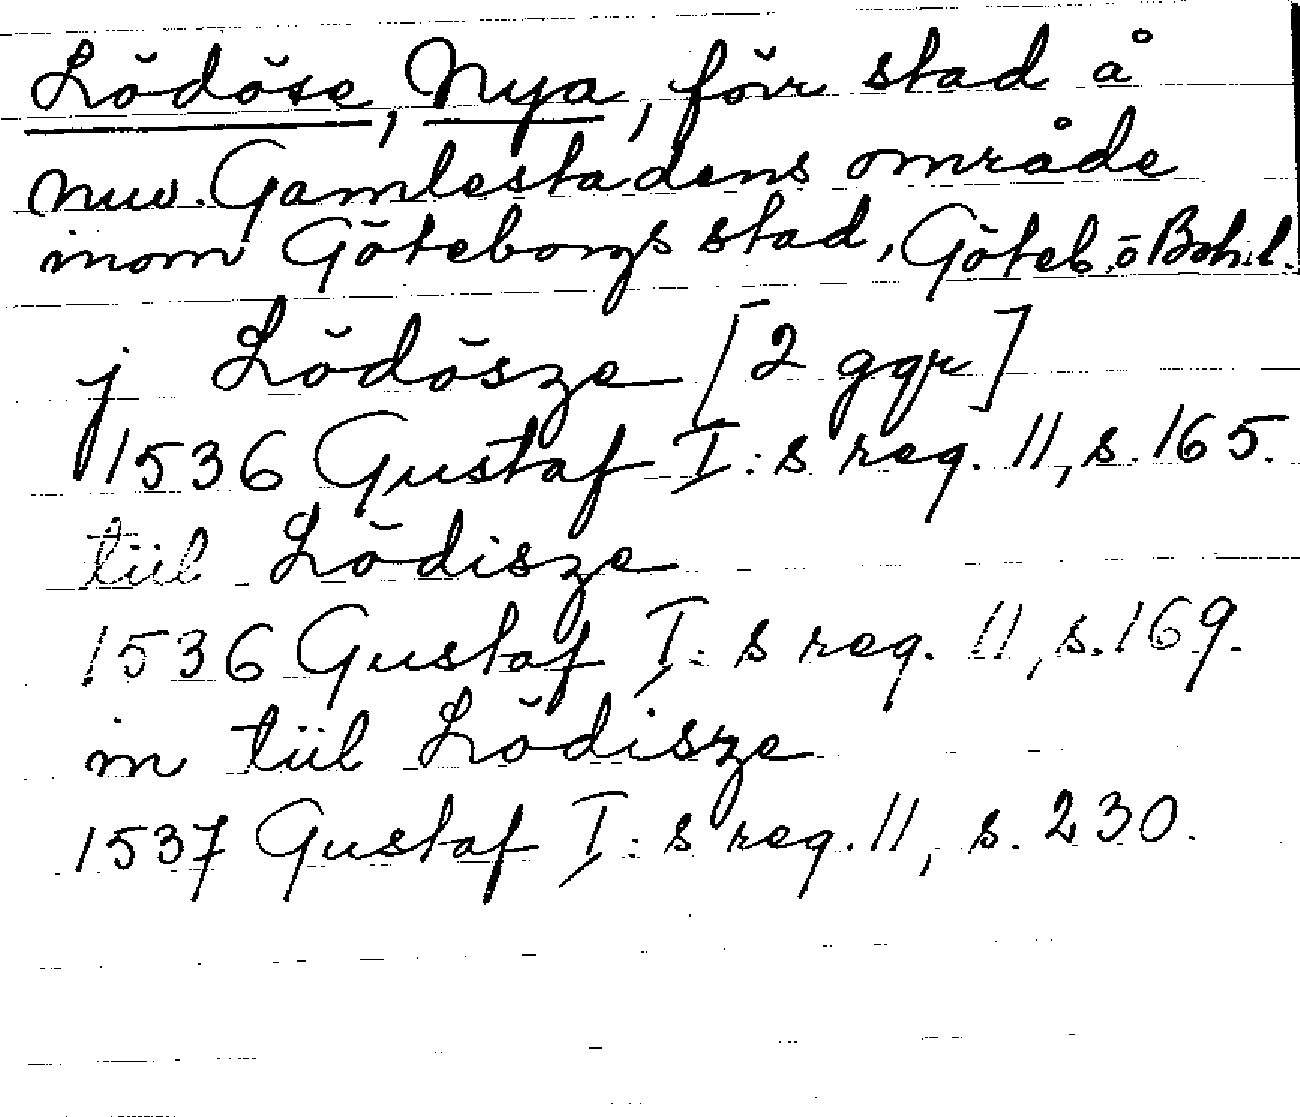 Lödöse, Nya, förr stad å
nuv. Gamlestadens område
inom Göteborgs stad, Göteb. o Bohl.
j Lödösze [2 ggr]
1536 Gustaf I:s reg. 11, s. 165.
tiil Lödisze
1536 Gustaf I:s reg. 11, s. 169.
in tiil Lödisze
1537 Gustaf I:s reg. 11, s. 230.